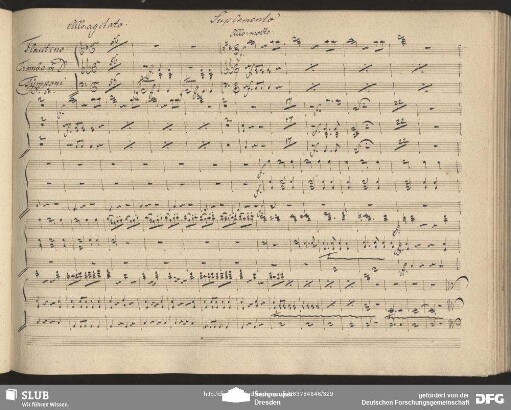 All:o agitato.
Suplemento
All:o molto
Flautino
Trombe in D
Timpani
SLUB
Wir führen Wissen.
Dresden
gefördert von der
Deutschen Forschungsgemeinschaft
DFG